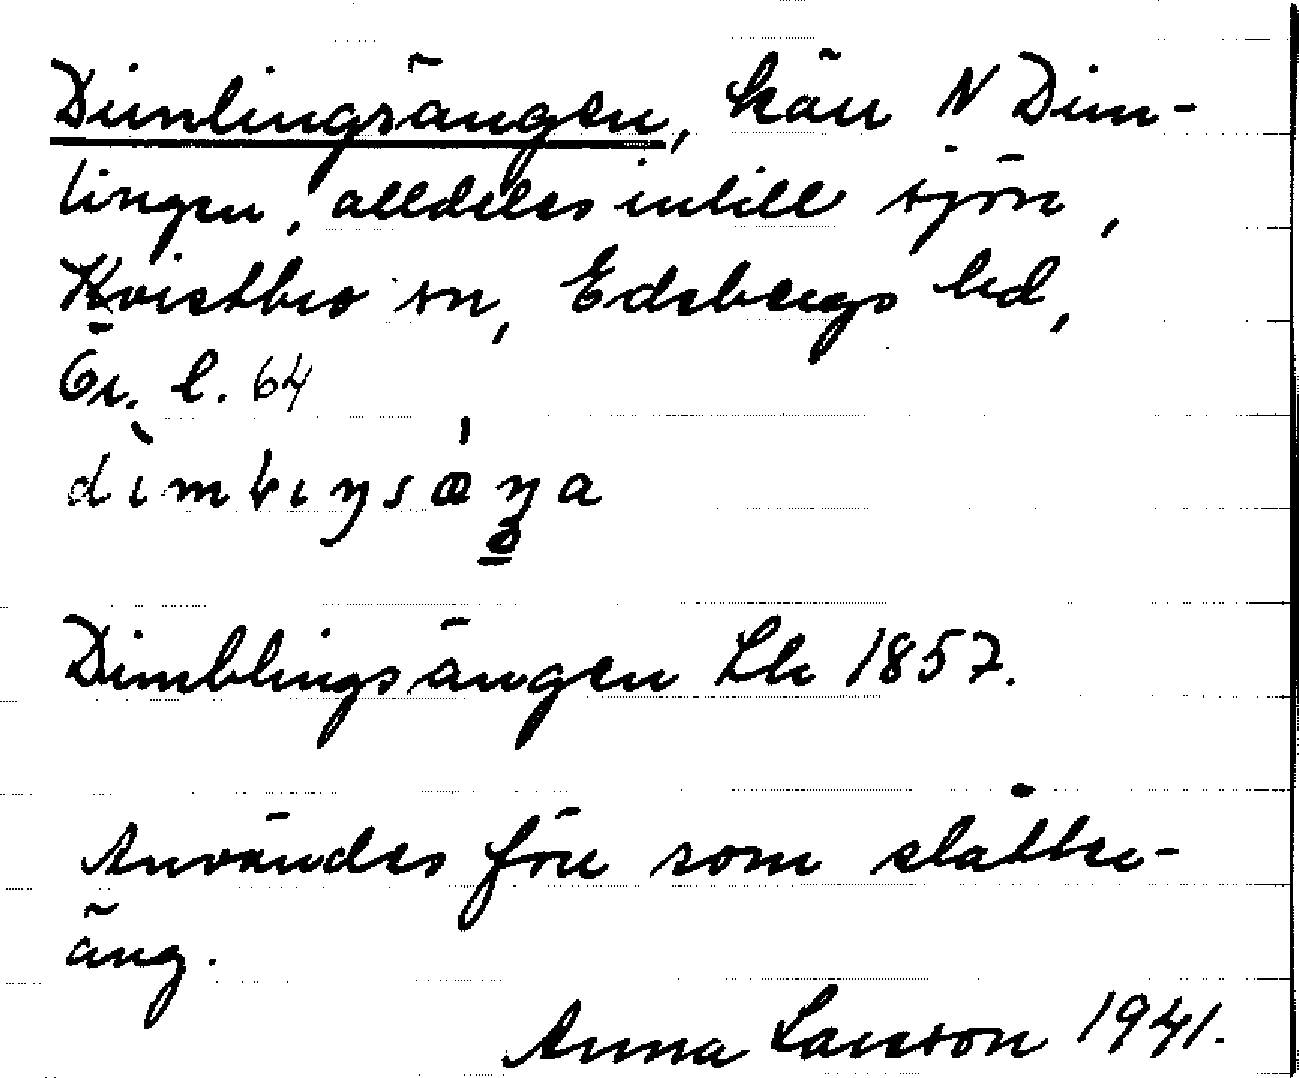 Dimlingsängen, kärr N Dim-
lingen, alldeles intill sjön,
Kvistbro sn, Edsbergs hd,
Ör. l. 64
Dimblingsängen Lk 1857.
Användes förr som slåtter-
äng.
Anna Larsson 1941.